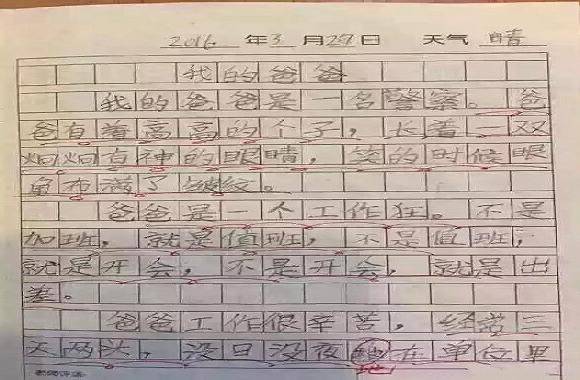 2016 年3月27日 天气 晴
我的爸爸
我的爸爸是一名警察。爸
爸有着高高的个子，长着一双
炯炯有神的眼睛，笑的时候眼
角布满了皱纹。
爸爸是一个工作狂。不是
加班，就是值班，不是值班，
就是开会，不是开会，就是出
差。
爸爸工作很辛苦，经常三
天两头，没日没夜地在单位里